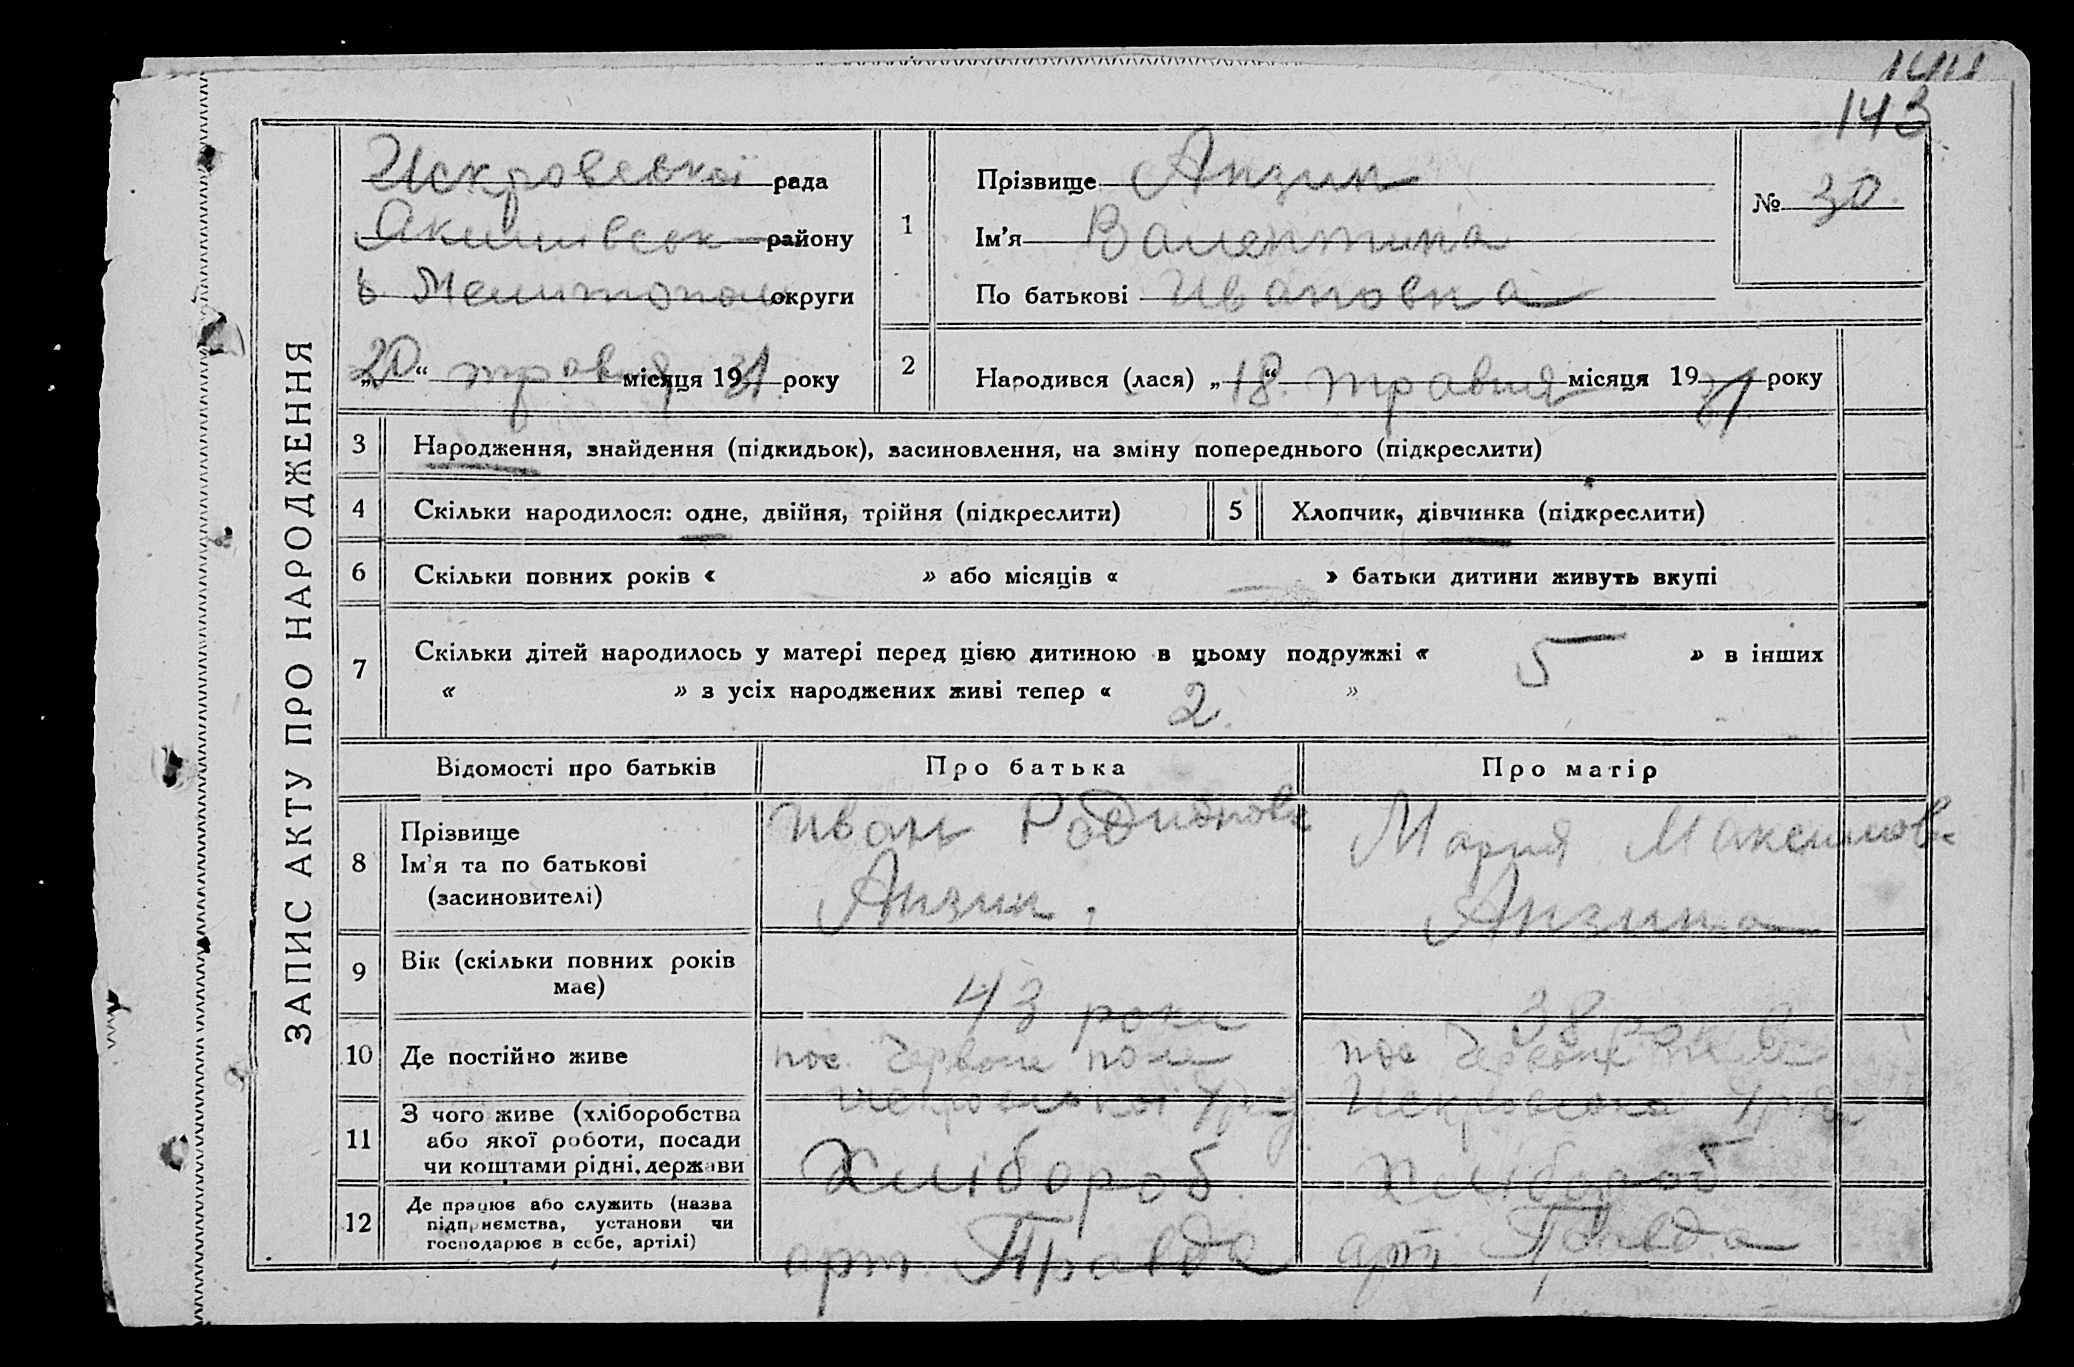 144
143
ЗАПИС АКТУ ПРО НАРОДЖЕННЯ
Искровської рада
Якимівськ району
в Мелитополь округи
„20“ травня місяця 1931 року
1
Прізвище Анзин
Ім’я Валентина
По батькові Ивановна
№ 30.
2
Народився (лася) „18“ травня місяця 1931 року
3 Народження, знайдення (підкидьок), засиновлення, на зміну попереднього (підкреслити)
4 Скільки народилося: одне, двійня, трійня (підкреслити)
5 Хлопчик, дівчинка (підкреслити)
6 Скільки повних років « » або місяців « » батьки дитини живуть вкупі
7 Скільки дітей народилось у матері перед цією дитиною в цьому подружжі « 5 » в інших
« » з усіх народжених живі тепер « 2. »
Відомості про батьків Про батька Про матір
8 Прізвище
Ім’я та по батькові
(засиновителі)
Иван Родионов
Анзин.
Мария Максимов
Анзина
9 Вік (скільки повних років
має)
43 роки
38 років
10 Де постійно живе
пос. Червоне поле
пос Червоне поле
11 З чого живе (хліборобства
або якої роботи, посади
чи коштами рідні, держави
Хлібороб.
Хлібороб
12 Де працює або служить (назва
підприємства, установи чи
господарює в себе, артілі)
арт. Правда
арт. Правда